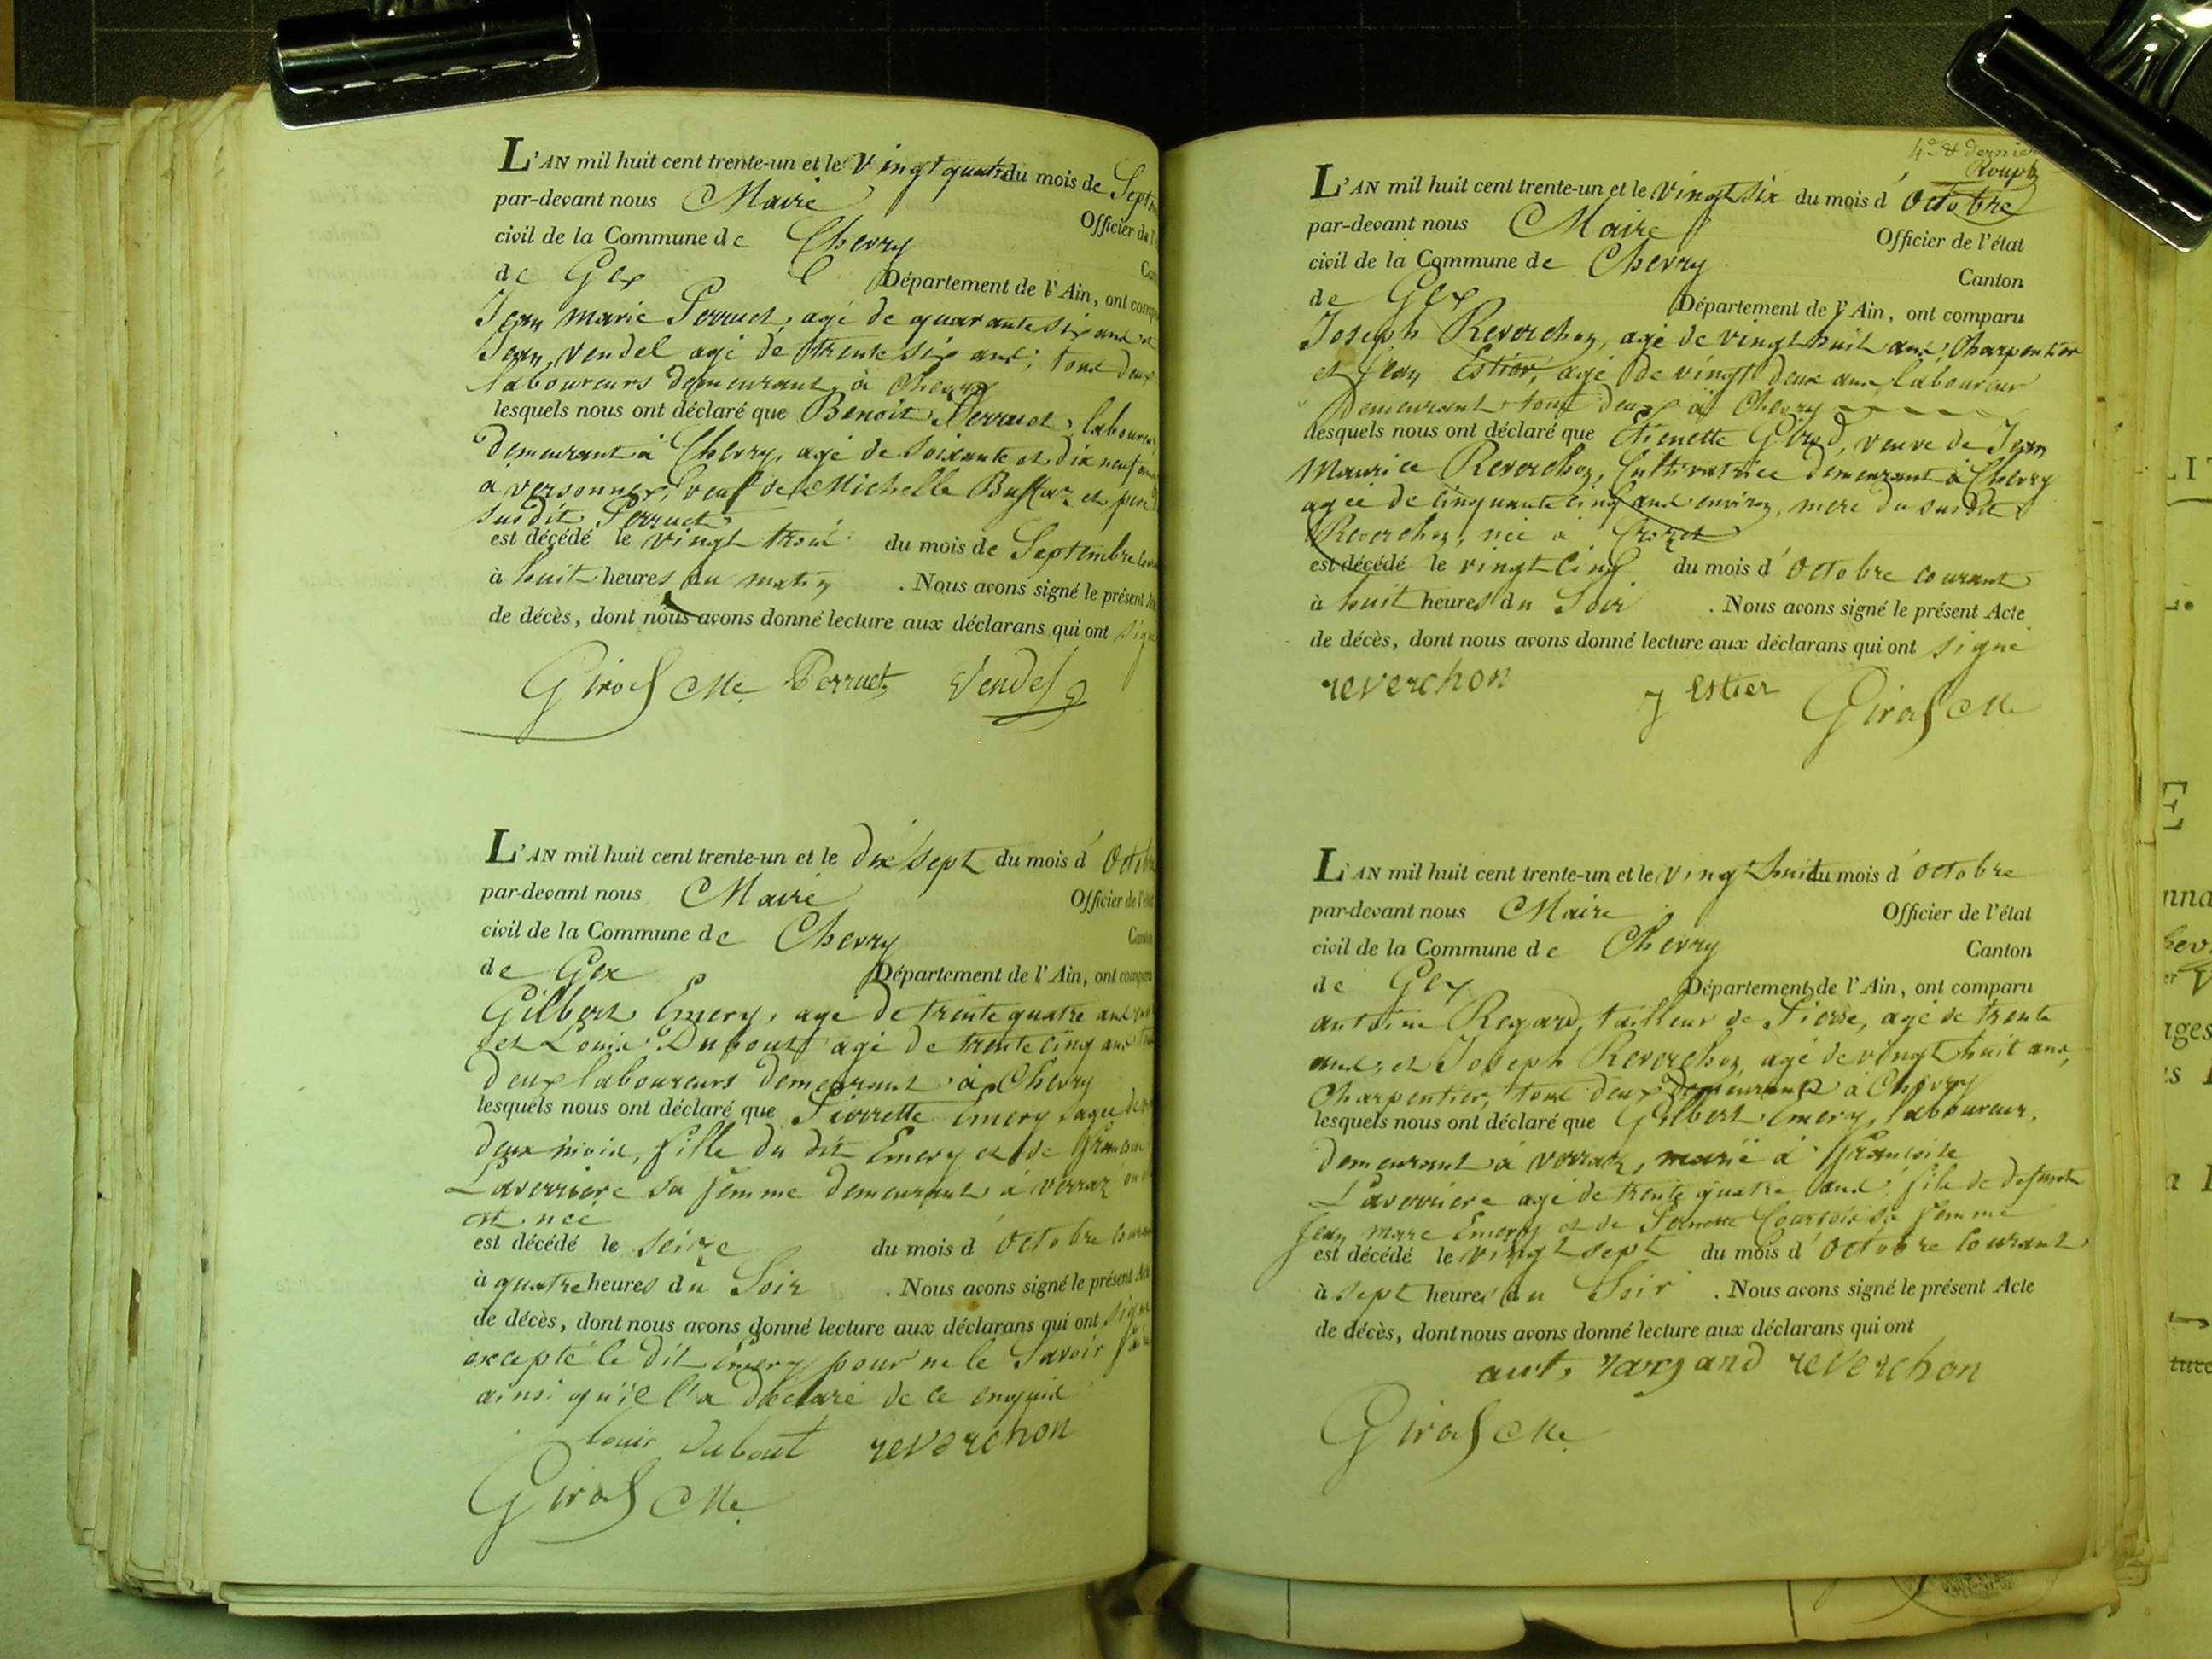 L'AN mil huit cent trente-un et le vingt quatre du mois de Sept
par-devant nous Maire Officier de l'
civil de la Commune de Chevry
de Gex Département de l'Ain, ont comp
Jean Marie Perruet, agé de quarante six ans et
Jean Vendel agé de trente six ans, tous deux
laboureurs demeurant à Chevry
lesquels nous ont déclaré que Benoit Perruet laboureur
demeurant à Chevry, agé de soixante et dix neuf ans
à versonnex, veuf de Michelle Buffaz et pere
susdit Perruet
est décédé le vingt trois du mois de Septembre
à huit heures du matin . Nous avons signé le présent
de décès, dont nous avons donné lecture aux déclarans qui ont signé
Girod Me. Perruet Vendel
L'AN mil huit cent trente-un et le dix sept du mois d'Octobre
par-devant nous Maire Officier de l'état
civil de la Commune de Chevry Canton
de Gex Département de l'Ain, ont comparu
Gilbert Emery, agé de trente quatre ans
et Louis Dubout agé de trente cinq ans
deux laboureurs demeurant à Chevry
lesquels nous ont déclaré que Pierrette Emery agée de
deux mois, fille du dit Emery et de
Laverriere sa femme demeurant à verraz
est née
est décédé le seize du mois d'Octobre courant
à quatre heures du Soir . Nous avons signé le présent Acte
de décès, dont nous avons donné lecture aux déclarans qui ont signé
excepté le dit Emery pour ne le Savoir
ainsi qu'il l'a déclaré de ce enquis
louis dubout reverchon
Girod Me.
4e & dernier
Rouph
L'AN mil huit cent trente-un et le vingt six du mois d'Octobre
par-devant nous Maire Officier de l'état
civil de la Commune de Chevry Canton
de Gex Département de l'Ain, ont comparu
Joseph Reverchon, agé de vingt huit ans, Charpentier
et Jean Estier, agé de vingt deux ans laboureur
demeurant tous deux à Chevry
lesquels nous ont déclaré que Etienette Girod, veuve de Jean
Maurice Reverchon, Cultivatrice demeurant à Chevry
agée de cinquante cinq ans environ, mere du susdit
Reverchon, née à Crozet
est décédé le vingt cinq du mois d'Octobre courant
à huit heures du Soir . Nous avons signé le présent Acte
de décès, dont nous avons donné lecture aux déclarans qui ont signé
reverchon J Estier Girod Me
L'AN mil huit cent trente-un et le vingt huit du mois d'octobre
par-devant nous Maire Officier de l'état
civil de la Commune de Chevry Canton
de Gex Département de l'Ain, ont comparu
antoine Regard, tailleur de Pierre, agé de trente
ans, et Joseph Reverchon, agé de vingt huit ans,
Charpentier, tous deux demeurant à Chevry
lesquels nous ont déclaré que Gilbert Emery, laboureur,
demeurant à verraz, marié à Françoise
Laverriere agé de trente quatre ans, fils de defunts
Jean marc Emery et de Pernette Courtois sa femme
est décédé le vingt sept du mois d'Octobre courant
à sept heures du Soir . Nous avons signé le présent Acte
de décès, dont nous avons donné lecture aux déclarans qui ont
reverchon
Girod Me.